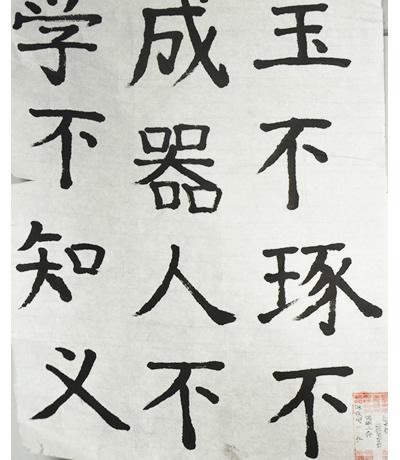 玉不琢不
成器人不
学不知义